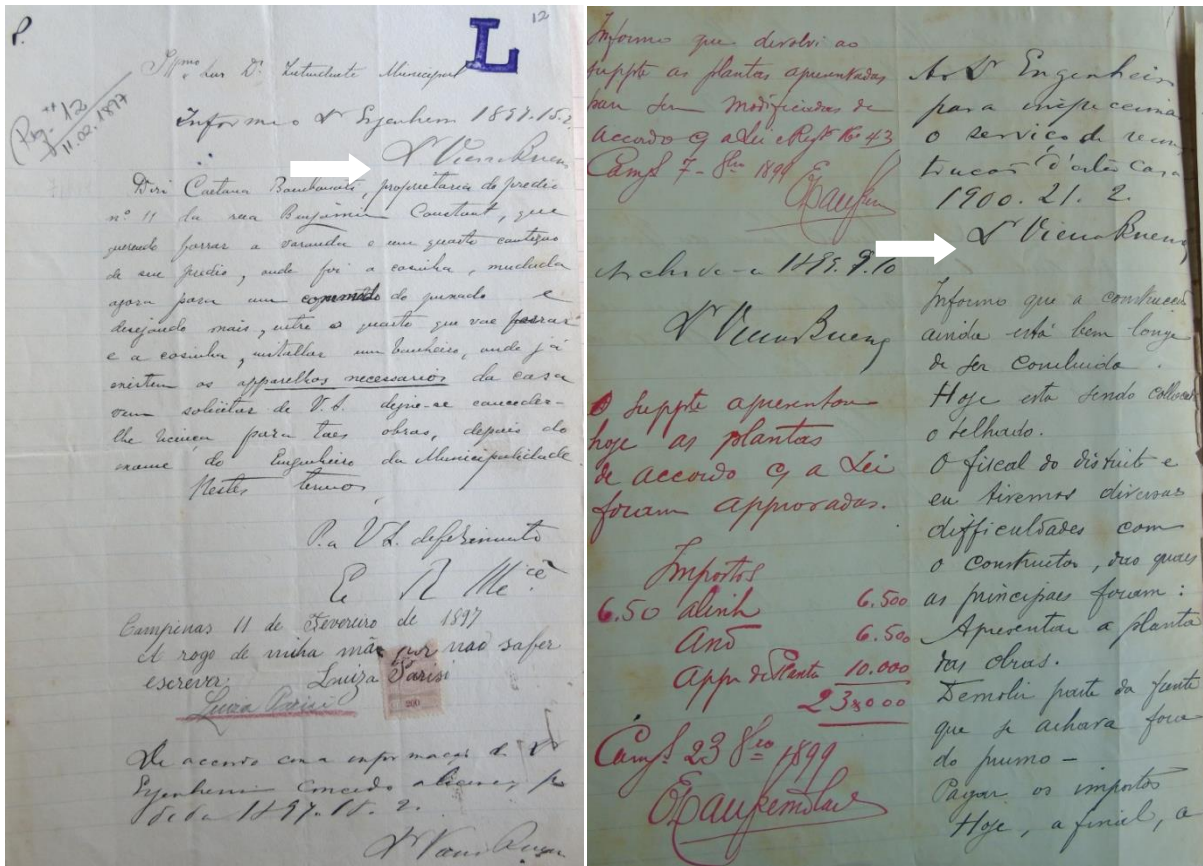 P.
12
L
Illmo Snr Dr Intendente Municipal
Reg. 12
11.02.1897
Informe o Dr Engenheiro 1897.15.2.
Dr Vieira Bueno
Diz Caetana , proprietaria do predio
nº 11 da rua Benjamin Constant, que
querendo forrar a varanda e um quarto contiguo
de seu predio, onde foi a cosinha, mudada
agora para um commodo do puxado e
desejando mais, entre o quarto que vae forrar
e a cosinha, installar um banheiro, onde já
existem os apparelhos necessarios da casa
vem solicitar de V. S. digne-se conceder-
lhe licença para taes obras, depois do
exame do Engenheiro da Municipalidade.
Nestes termos
P. a V. S. deferimento
E R Mcê
Campinas 11 de Fevereiro de 1897
A rogo de minha mãe por não saber
escrever: Luiza Parisi
200
Luiza Parisi
De accordo com a informação do Dr
Engenheiro concedo a licença
1897.18.2.
Informo que devolvi ao
suppte as plantas apresentadas
para serem modificadas de
accordo c/ a Lei e Regto No 43
Camps 7-8bro 1899
Archive-se 1899.9.10
Dr Vieira Bueno
O suppte apresentou
hoje as plantas
de accordo c/ a Lei
foram approvadas.
Impostos
6.50 alinh 6.500
And 6.500
App de Planta 10.000
23$000
Camps 23 8bro 1899
Ao Dr Engenheiro
para inspeccionar
o serviço de recons
trucção d'esta casa
1900. 21. 2.
Dr Vieira Bueno
Informo que a construcção
ainda está bem longe
de ser concluida.
Hoje está sendo collocado
o telhado.
O fiscal do districto e
eu tivemos diversas
difficuldades com
o constructor, das quaes
as principaes foram:
Apresentar a planta
das obras.
Demolir parte da frente
que se achava fora
do prumo –
Pagar os impostos
Hoje, afinal, a